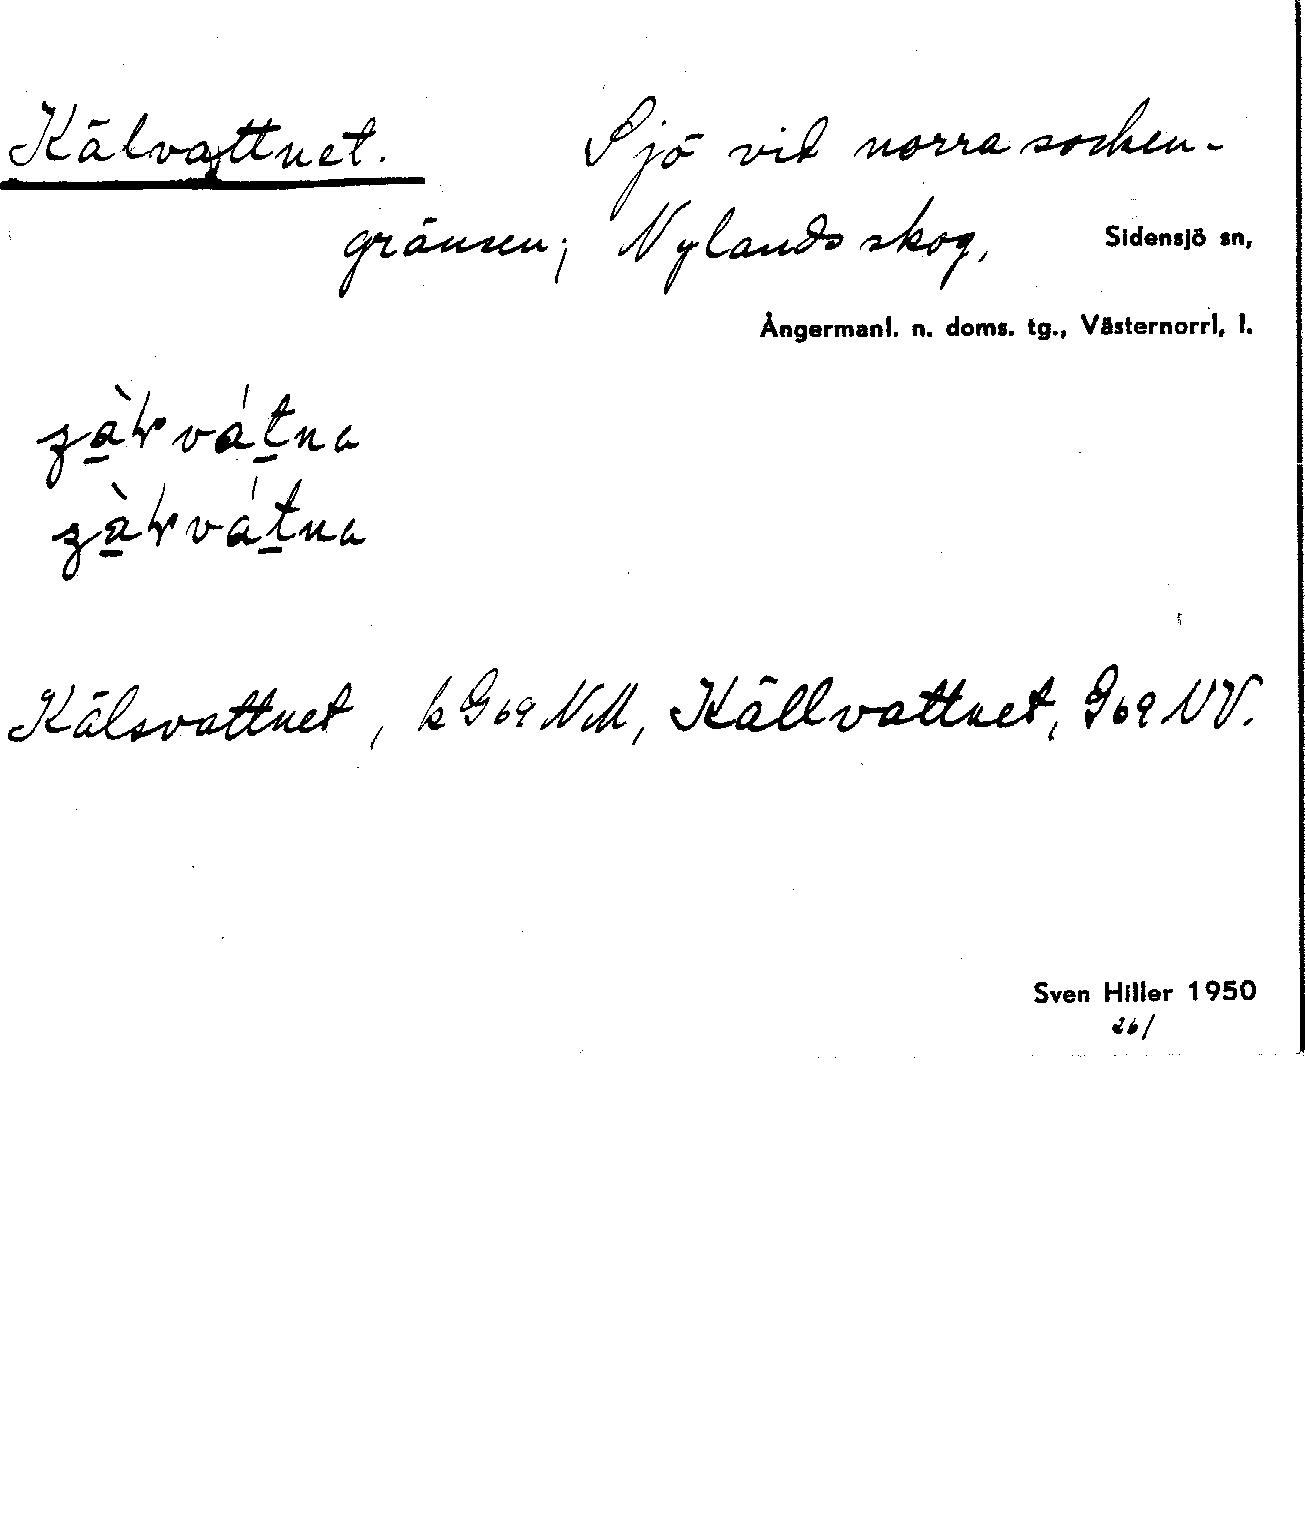 Kälvattnet. Sjö vid norra socken-
gränsen; Nylands skog, Sidensjö sn,
Ångermanl. n. doms. tg., Västernorrl, l.
Kälsvattnet, k G69 NM, Källvattnet, G69 NV.
Sven Hiller 1950
26/